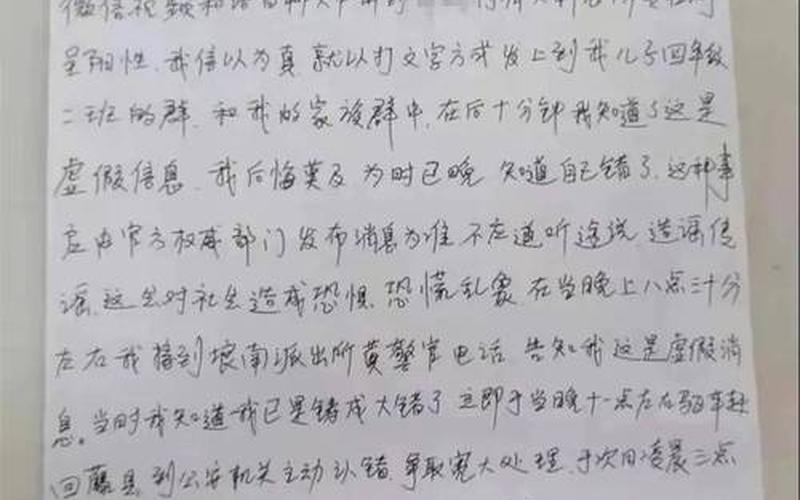 微信视频和语音聊天中听到
呈阳性、我信以为真、就以打文字方式发上到我儿子四年级
二班的群、和我的家族群中、在后十分钟我知道了这是
虚假信息、我后悔莫及、为时已晚、知道自己错了、这种事
应由官方权威部门发布消息为准、不应道听途说、造谣传
谣、这会对社会造成恐惧、恐慌乱象、在当晚上八点三十分
左右我接到埌南派出所黄警官电话、告知我这是虚假消
息。当时我知道我已是铸成大错了、立即于当晚十一点左右驱车赶
回藤县、到公安机关主动认错、争取宽大处理、于次日凌晨三点